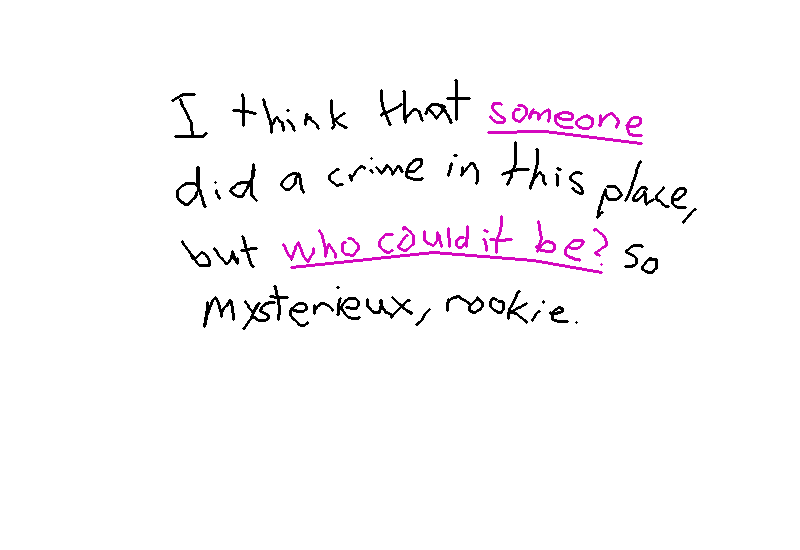 I think that someone
did a crime in this place,
but who could it be? so
mysterieux, rookie.